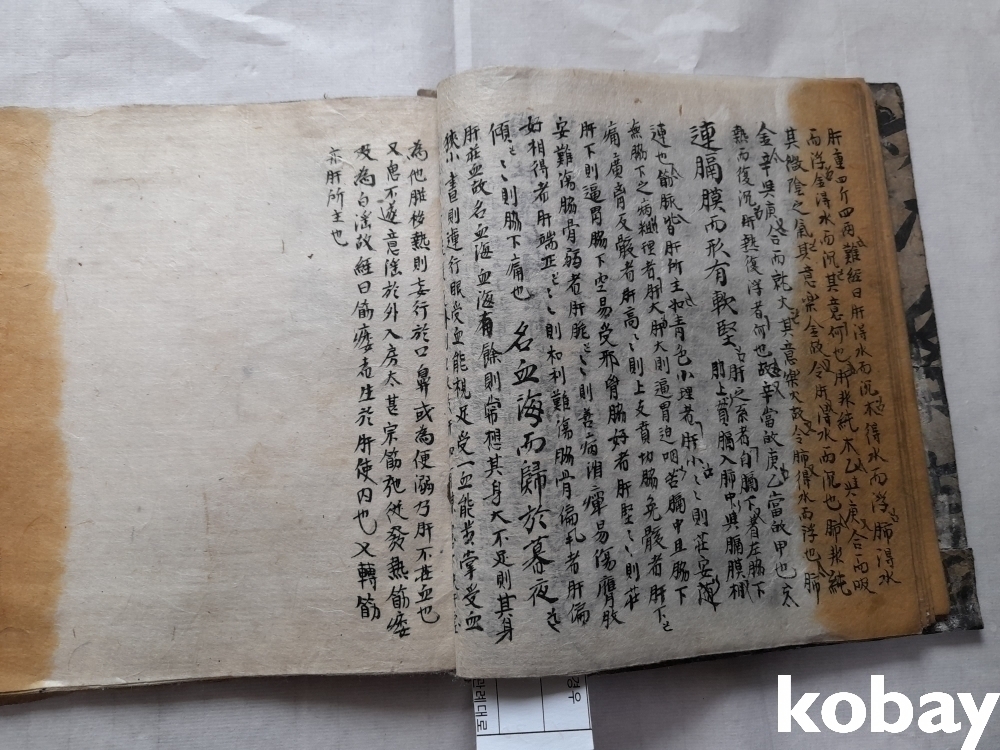 肝重四斤四兩難經曰肝得水而沉木得水而浮肺得水
而浮金得水而沉其意何也肝非純木乙與庚合而吸
其微陰之氣其意樂金故令肝得水而沉也肺非純
金辛與丙合而就火其意樂火故令肺得水而浮也肺
熱而復沉肝熱復浮者何也故辛當敀庚乙當敀甲也
連膈膜而形有軟堅 肝之系者自膈下着左脇下
上賁膈入肺中與膈膜相
連也筋脈皆肝所主和靑色小理者肝小〻則莊安
無脇下之病粗理者肝大肺大則逼胃迫咽苦膈中且脇下
痛廣膺反骹者肝高〻則上支賁切脇兔骹者肝下〻
肝下則逼胃脇下空易受邪膺脇好者肝堅〻則莊
安難傷脇骨弱者肝脆〻則善病消癉易傷膺腹
好相得者肝端正〻則和利難傷脇骨偏札者肝偏
傾〻則脇下痛也 名血海而歸於慕夜
肝莊血故名血海血海有餘則常想其身大不足則其身
狹小 晝則運行眼受血能視足受血能步掌受血
為他臟移熱則妄行於口鼻或為便溺乃肝不莊血也
又思不遂意淫於外入房太甚宗筋弛從發熱筋痿
及為白淫故經曰筋痿者生於肝使內也 又轉筋
亦肝所主也
경우
한례대로
kobay